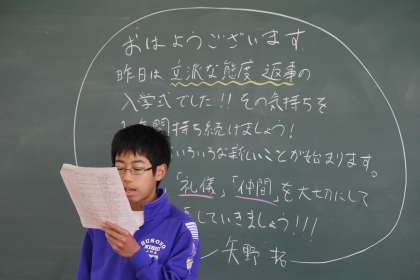 おはようございます。
昨日は立派な態度、返事の
入学式でした!!その気持ちを
年間持ち続けましょう!
いろいろな新しいことが始まります。
「礼儀」,「仲間」を大切にして
していきましょう!!!
矢野 拓